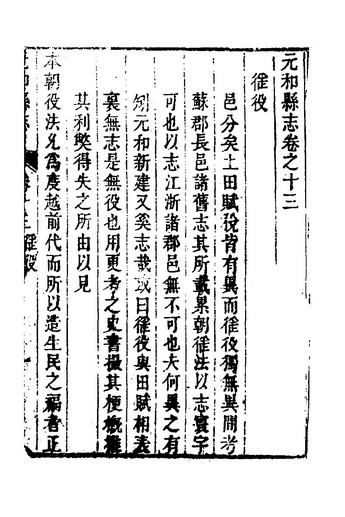 元和縣志卷之十三
徭役
邑分矣土田賦稅皆有異而徭役獨無異間考
蘇郡長邑諸舊志其所載累朝徭法以志寰宇
可也以志江浙諸郡邑無不可也夫何異之有
矧元和新建又奚志哉或曰徭役與田賦相表
裏無志是無役也用更考之史書撮其梗概
其利弊得失之所由以見
本朝役法允爲度越前代而所以造生民之福者正